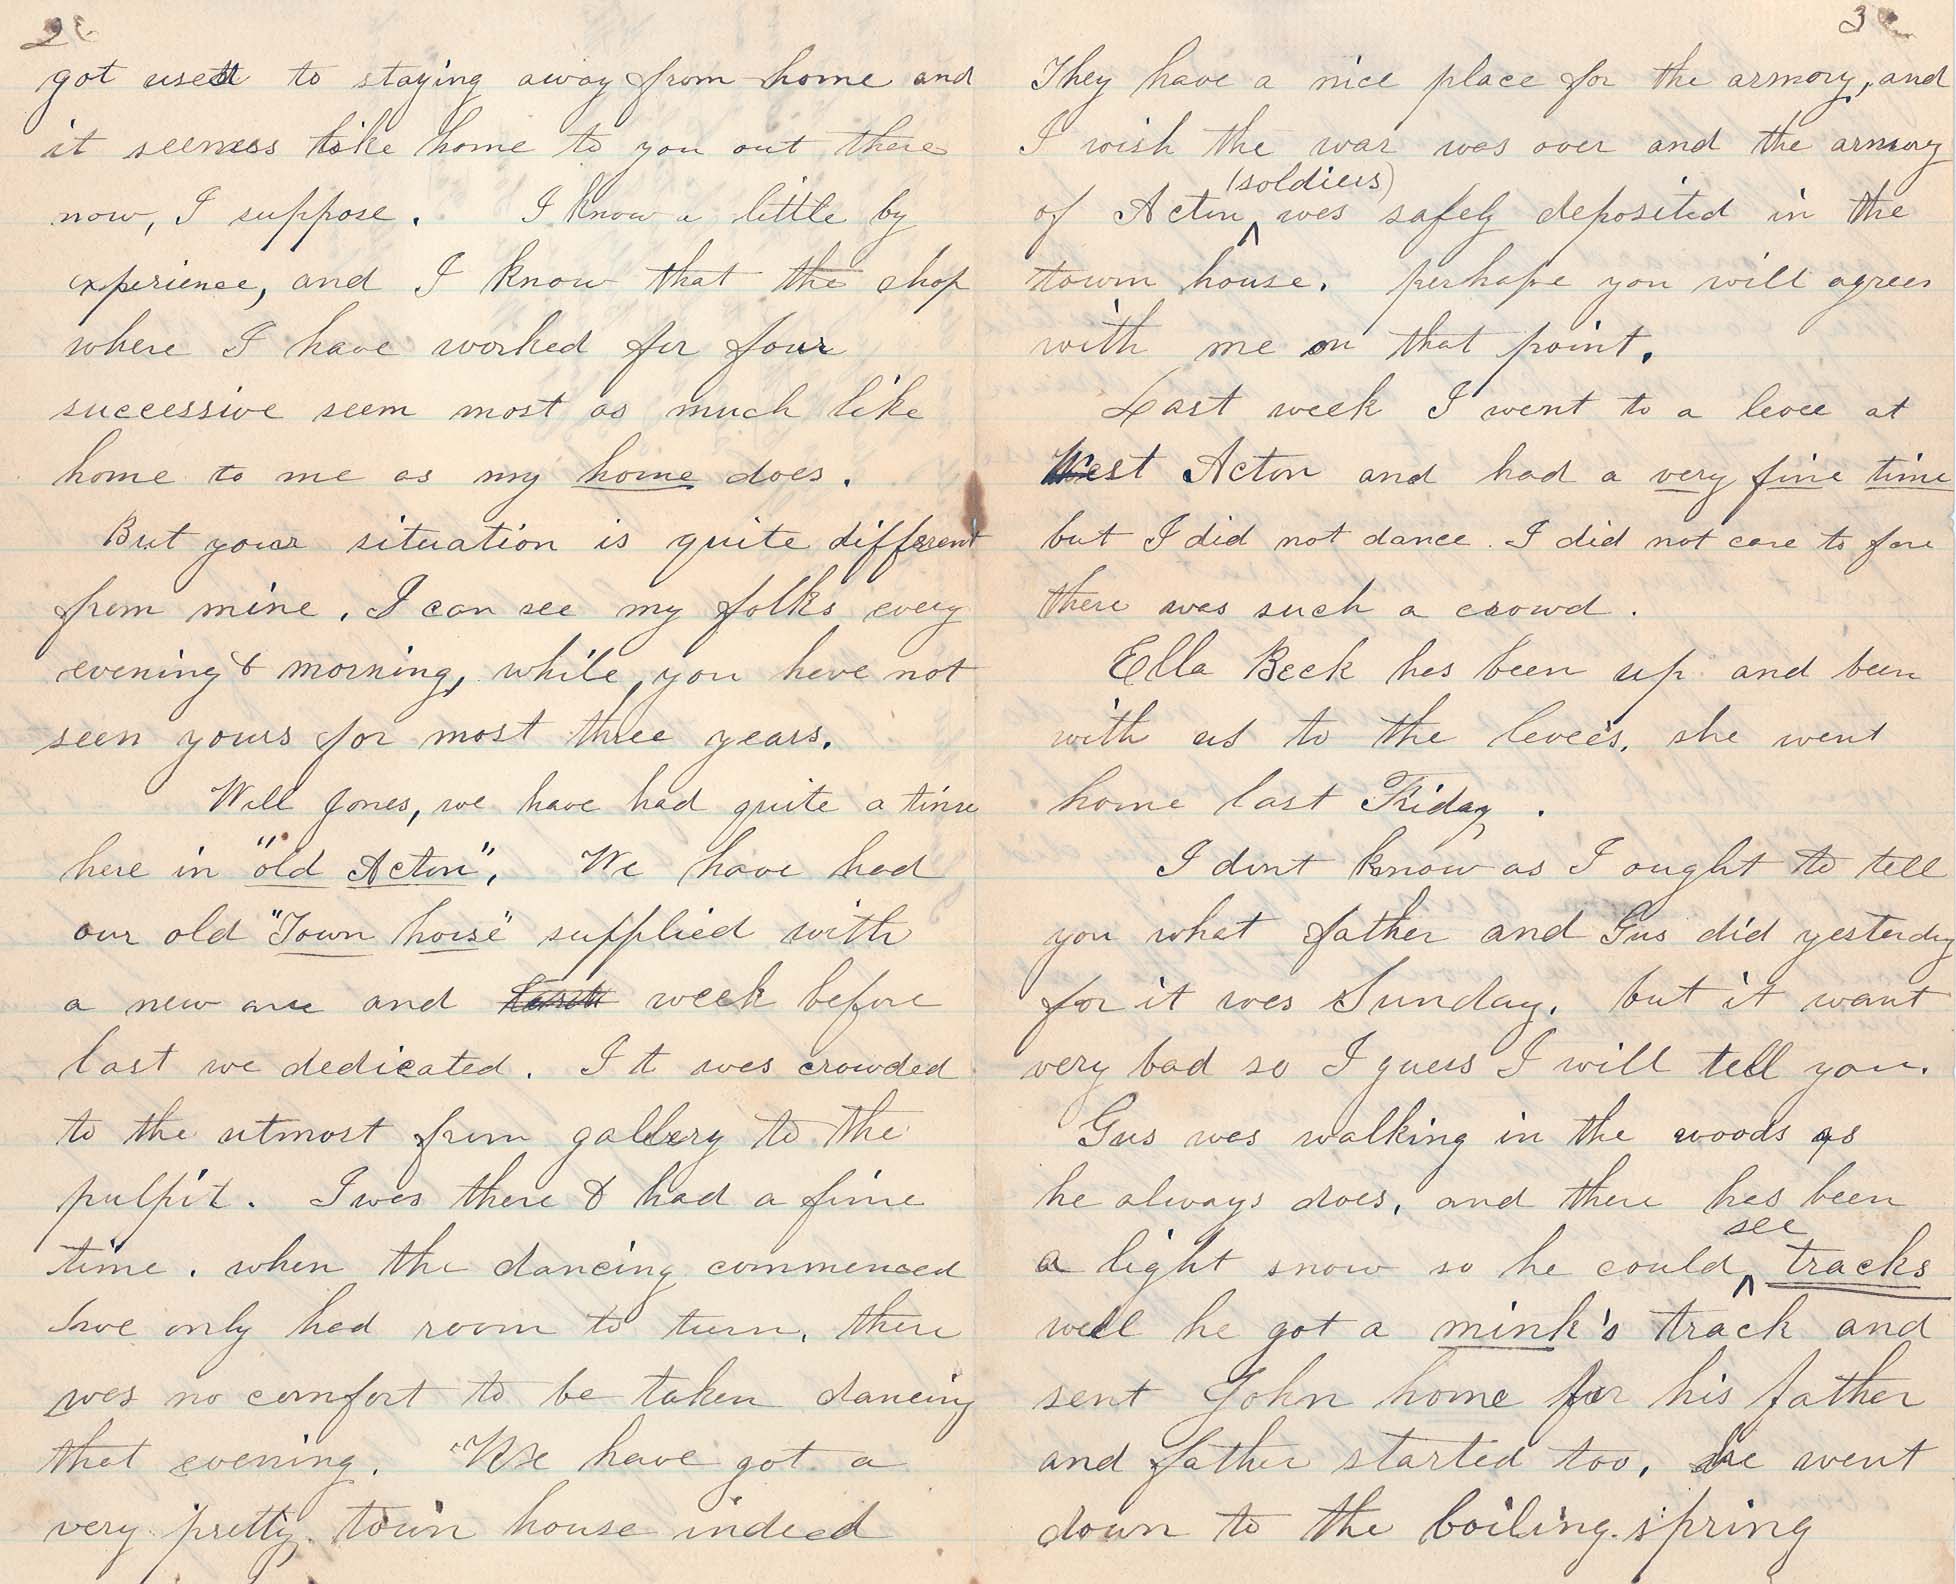 2
got used to staying away from home and
it seemes like home to you out there
now, I suppose. I know a little by
experience, and I know that the shop
where I have worked for four
successive seem most as much like
home to me as my home does.
But your situation is quite different
from mine. I can see my folks every
evening & morning, while, you have not
seen yours for most three years.
Will Jones, we have had quite a time
here in "old Acton". We have had
our old "Town house" supplied with
a new one and week before
last we dedicated. It was crowded
to the utmost from gallery to the
pulpit. I was there & had a fine
time. when the dancing commenced
we only had room to turn. there
was no comfort to be taken dancing
that evening. We have got a
very pretty town house indeed
3
They have a nice place for the armory, and
I wish the war was over and the armory
(soldiers)
of Acton ^ was safely deposited in the
town house. perhaps you will agree
with me on that point.
Last week I went to a levee at
West Acton and had a very fine time
but I did not dance. I did not care to for
there was such a crowd.
Ella Beck has been up and been
with us to the levee's. she went
home last Friday.
I dont know as I ought to tell
you what father and Gus did yesterday
for it was Sunday. but it want
very bad so I guess I will tell you.
Gus was walking in the woods as
he always does, and there has been
see
a light snow so he could ^ tracks
well he got a mink's track and
sent John home for his father
and father started too. he went
down to the boiling spring